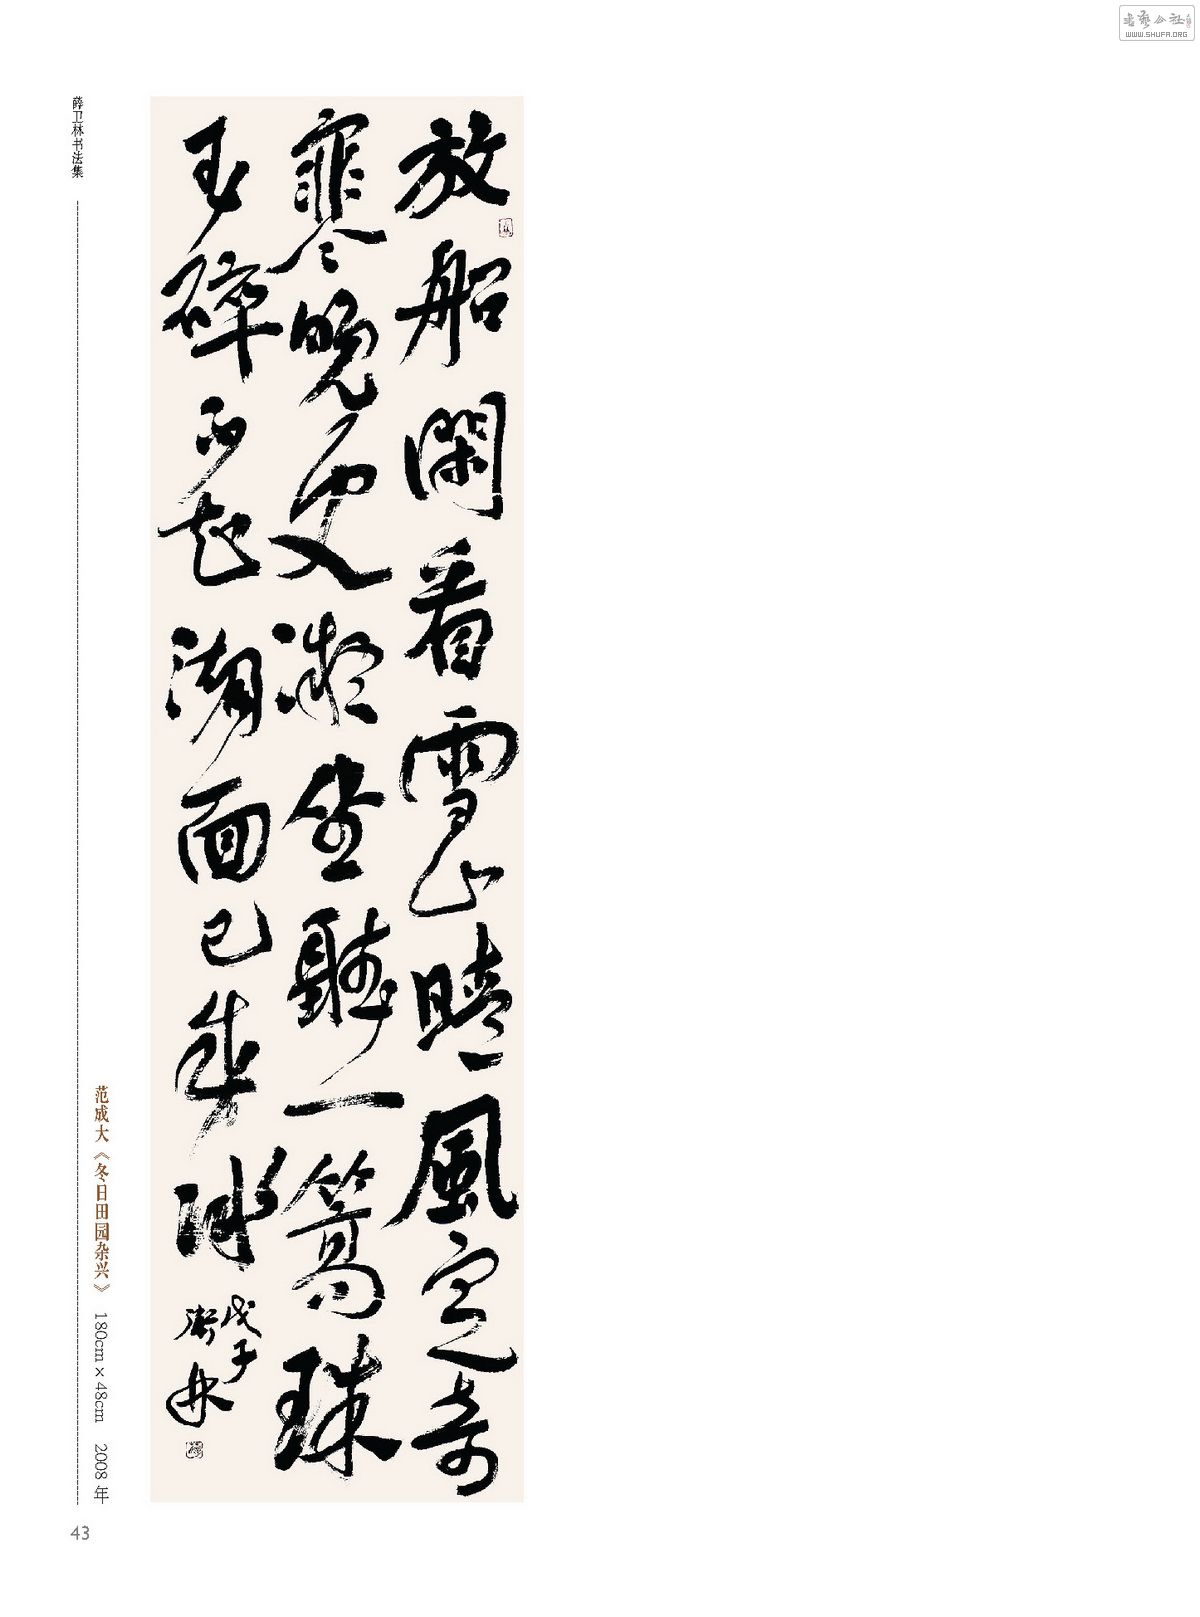 放船閑看雪山晴風定奇
寒晚更凝坐聽一篙珠
玉碎不知湖面已成冰
戊子
衛林
薛卫林书法集
范成大《冬日田园杂兴》 180cm×48cm 2008年
43
书艺公社
WWW.SHUFA.ORG